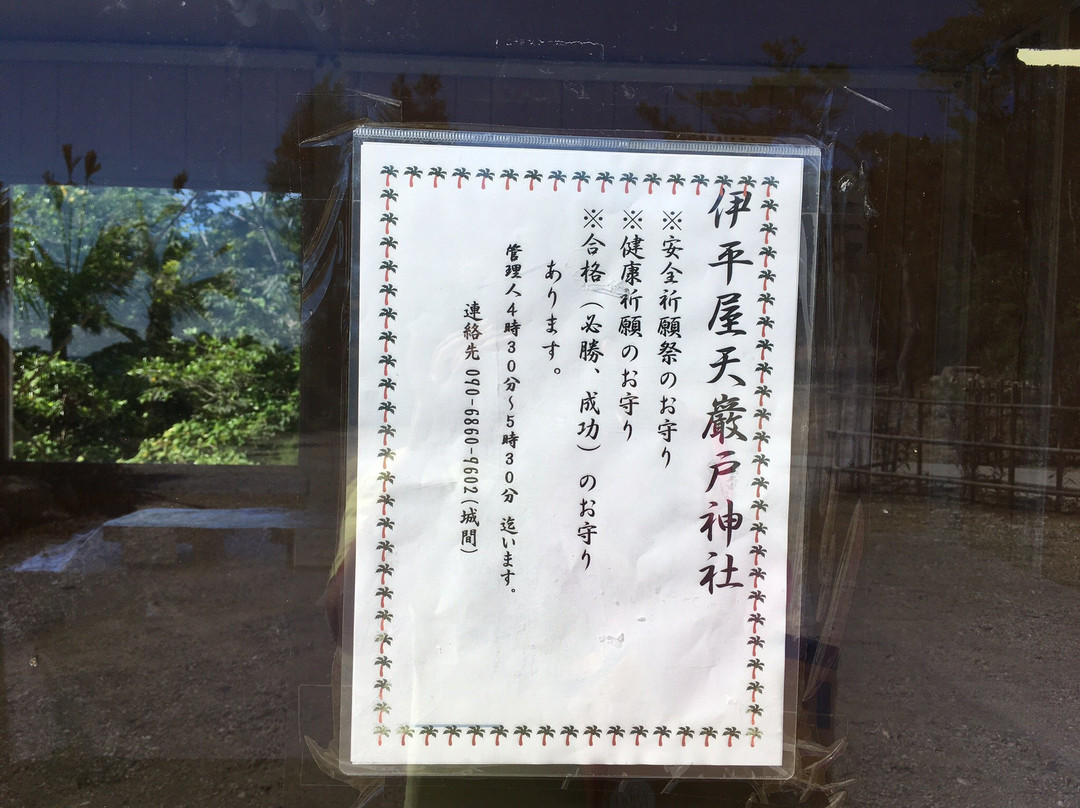 伊平屋天巌戸神社
※安全祈願祭のお守り
※健康祈願のお守り
※合格（必勝、成功）のお守り
あります。
管理人４時３０分～５時３０分 迄います。
連絡先 090-6860-9602（城間）